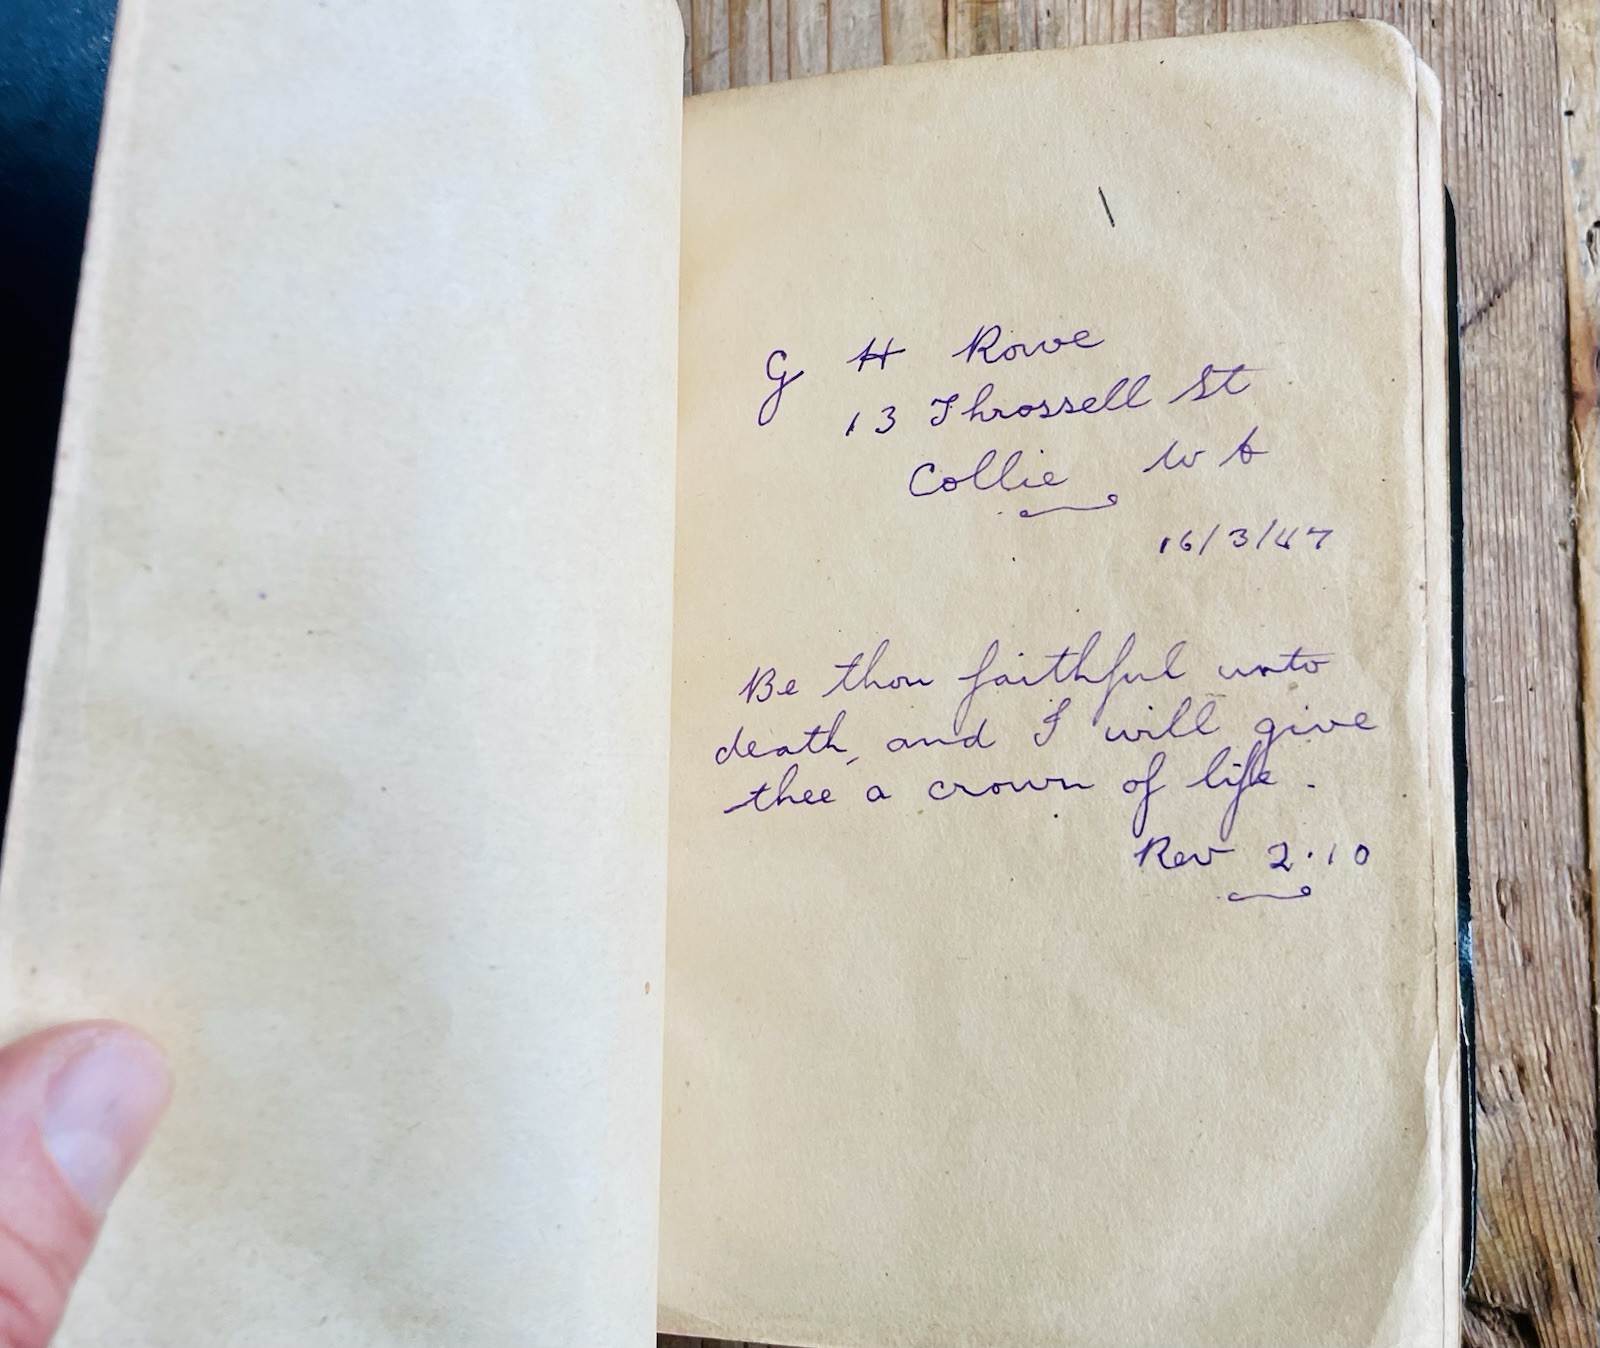 G H Rowe
13 Throssell St
Collie W A
16/3/47
Be thou faithful unto
death, and I will give
thee a crown of life.
Rev 2.10